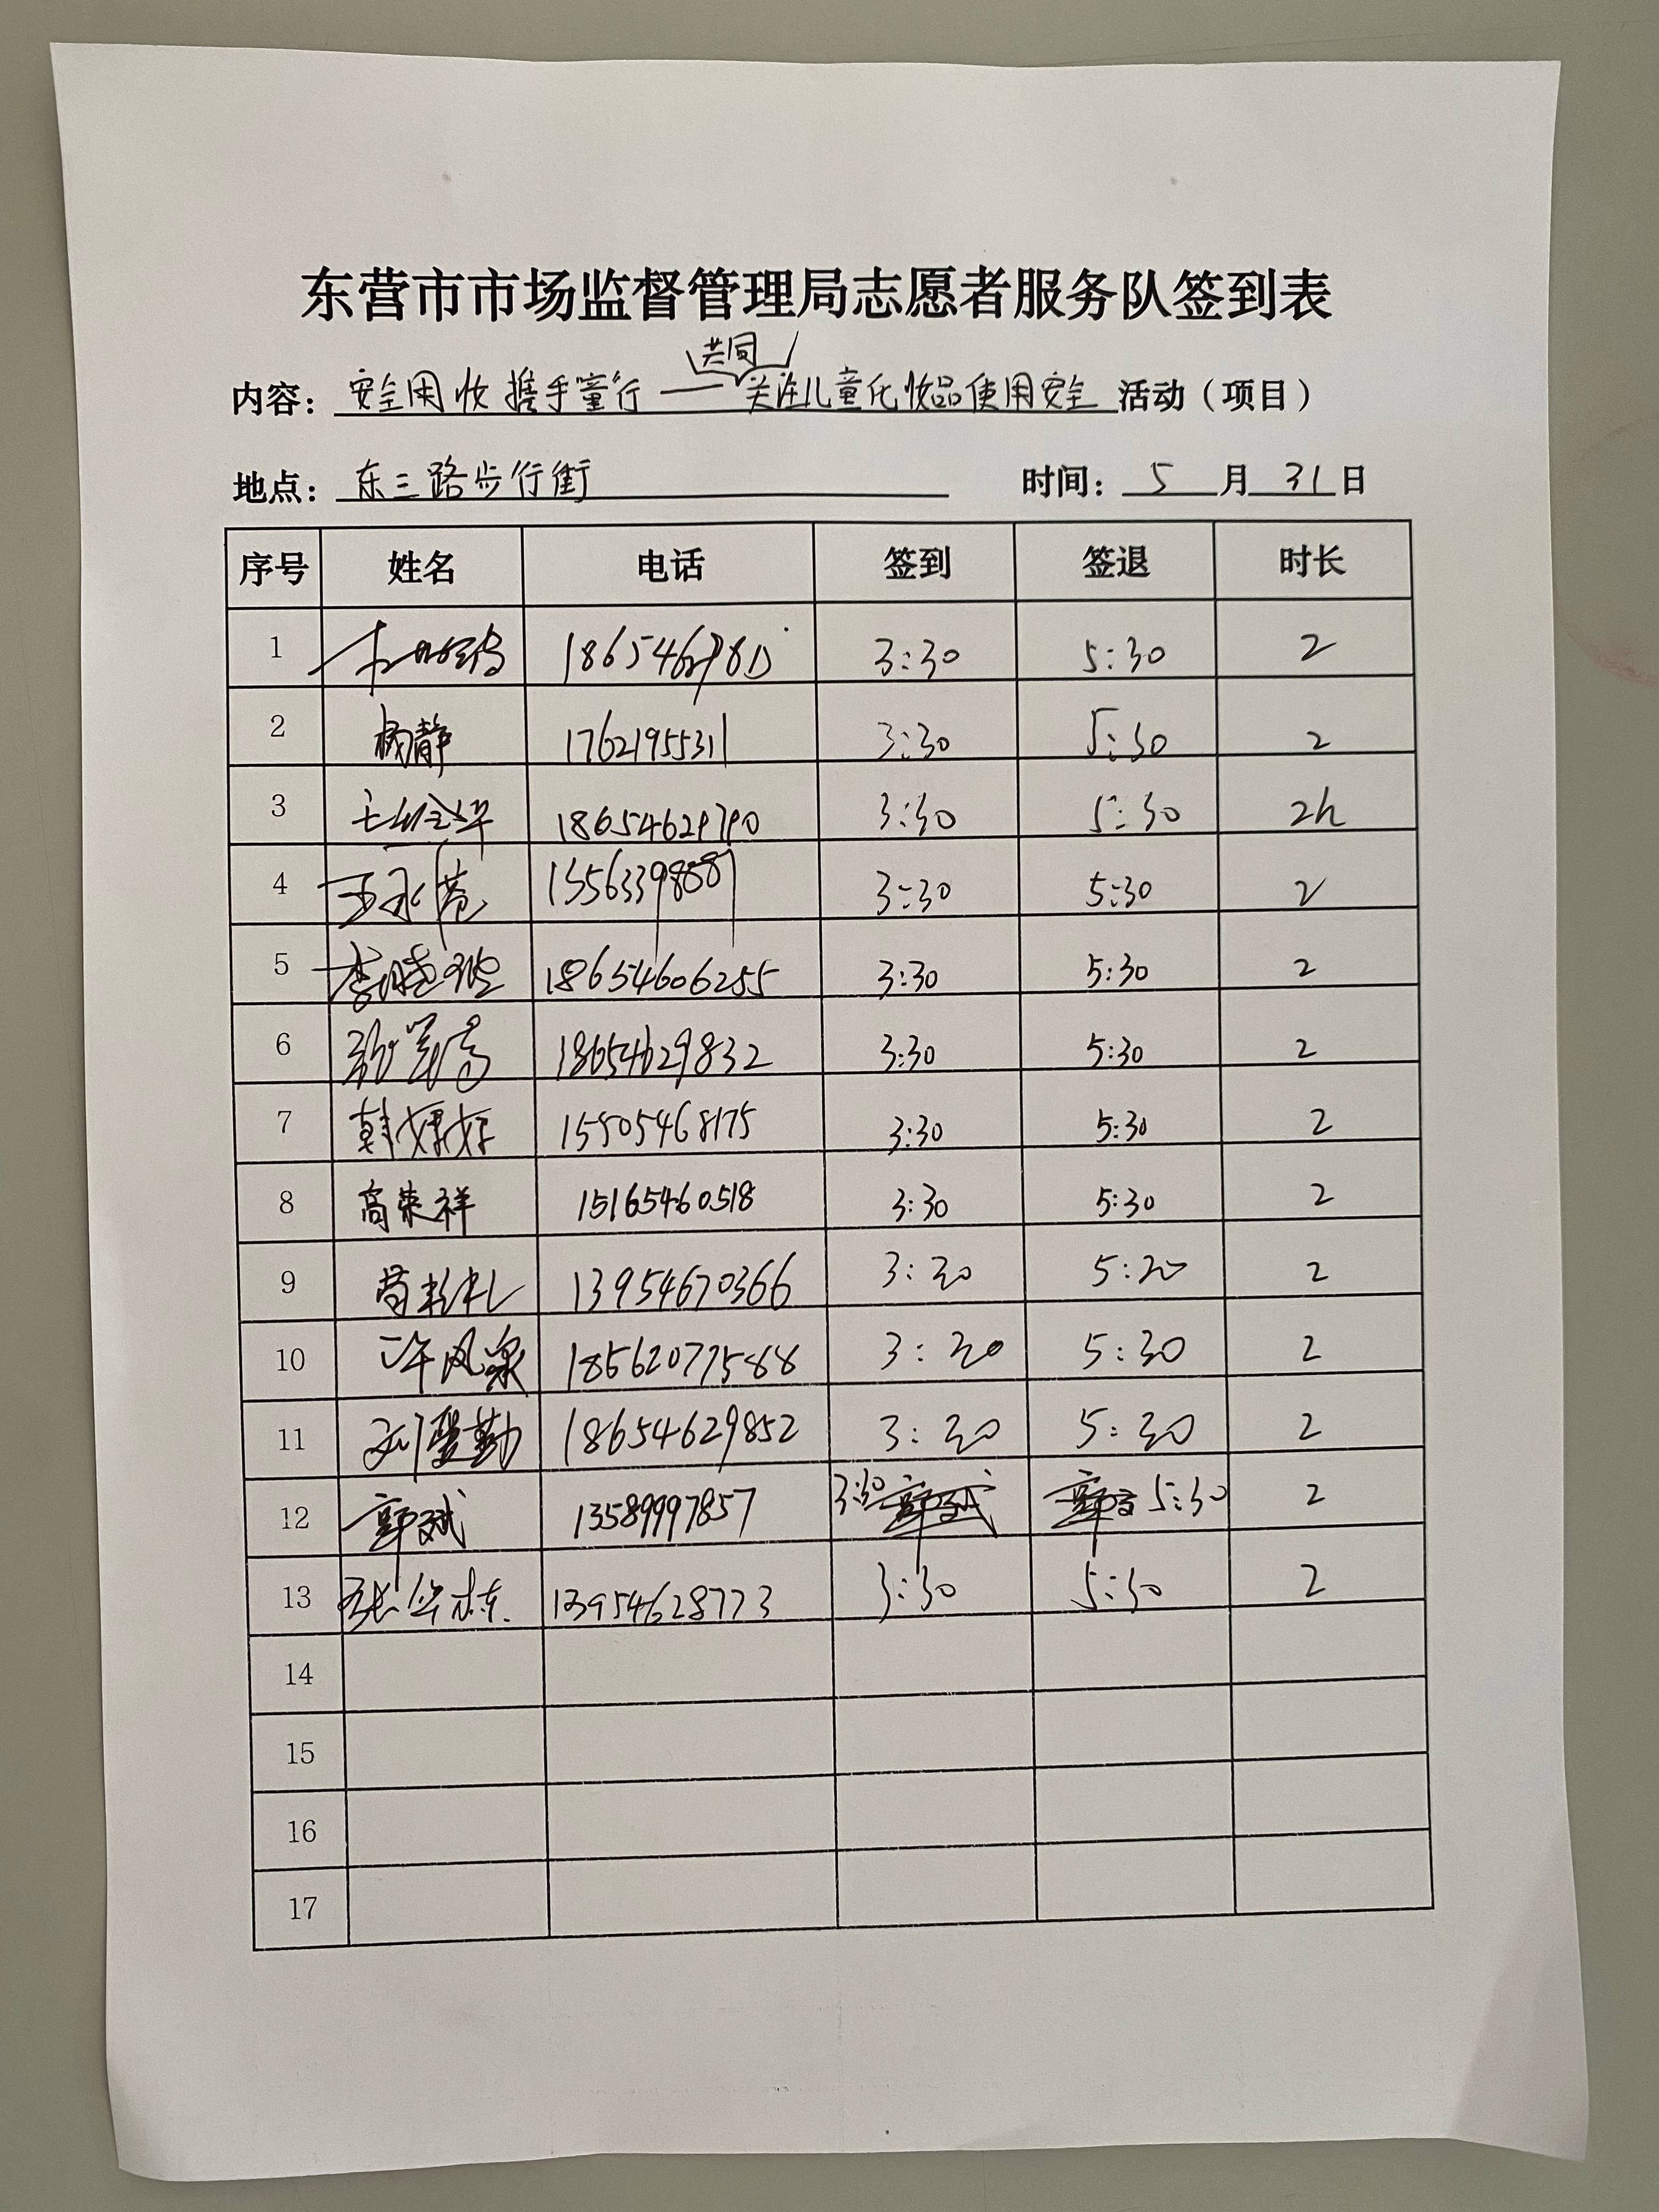 东营市市场监督管理局志愿者服务队签到表
内容：安全用妆 携手童行——共同关注儿童化妆品使用安全活动（项目）
地点：东三路步行街 时间：5月31日
序号 姓名 电话 签到 签退 时长
1 3:30 5:30 2
2 杨静 17621955311 3:30 5:30 2
3 18654629790 3:30 5:30 2h
4 王永苑 3:30 5:30 2
5 李晓璇 18654606255 3:30 5:30 2
6 18654629832 3:30 5:30 2
7 韩 15505468175 3:30 5:30 2
8 高荣祥 15165460518 3:30 5:30 2
9 13954670366 3:30 5:30 2
10 许凤泉 18562077588 3:30 5:30 2
11 刘聖勤 18654629852 3:30 5:30 2
12 郭斌 13589997857 3:30 5:30 2
13 张华栋 13954628773 3:30 5:30 2
14
15
16
17